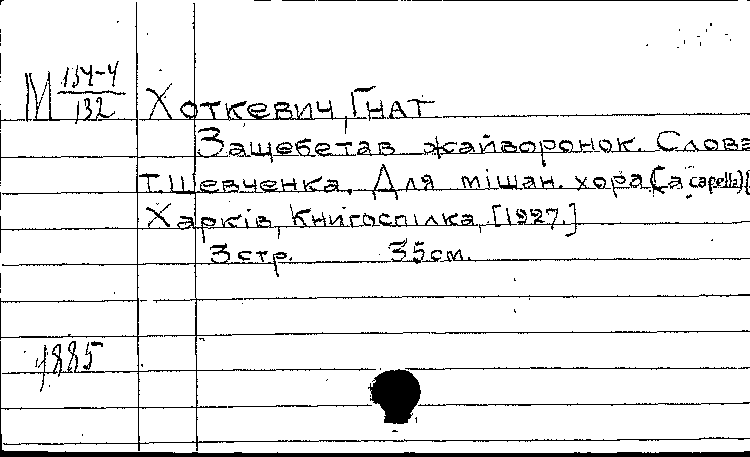 М 134-4/132 Хоткевич, Гнат
Защебетав жайворонок. Слова
Т. Шевченка. Для мішан. хора (a capella)[
Харків, Книгоспілка, [1927.]
3 стр. 35 см.
1885